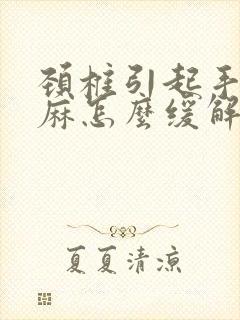 頸椎引起手
麻怎麼緩解
夏夏清涼